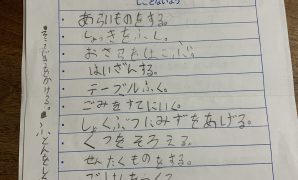 しごとないよう
・あらいものをする。
・しょっきをふく。
・おさらをはこぶ。
・はいぜんする。
・テーブルふく。
・ごみをすてにいく。
・しょくぶつにみずをあげる。
・くつをそろえる。
・せんたくものをする。